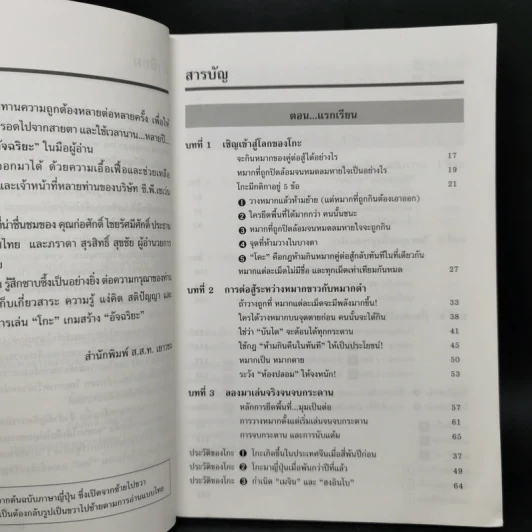 ทานความถูกต้องหลายต่อหลายครั้ง เพื่อให้
รอดไปจากสายตา และใช้เวลานาน...หลายปี...
อัจฉริยะ" ในมือผู้อ่าน
ออกมาได้ ด้วยความเอื้อเฟื้อและช่วยเหลือ
และเจ้าหน้าที่หลายท่านของบริษัท ซี.พี.เซเว่น
ที่น่าชื่นชมของ คุณก่อศักดิ์ ไชยรัศมีศักดิ์ ประธาน
ไทย และภราดา สุรสิทธิ์ สุขชัย ผู้อำนวยการ
รู้สึกซาบซึ้งเป็นอย่างยิ่ง ต่อความกรุณาของท่าน
เก็บเกี่ยวสาระ ความรู้ แง่คิด สติปัญญา และ
การเล่น "โกะ" เกมสร้าง "อัจฉริยะ"
สำนักพิมพ์ ส.ส.ท. เยาวชน
จากต้นฉบับภาษาญี่ปุ่น ซึ่งเปิดจากซ้ายไปขวา
เป็นต้องกลับรูปเป็นขวาไปซ้ายตามการอ่านแบบไทย
สารบัญ
ตอน...แรกเรียน
บทที่ 1 เชิญเข้าสู่โลกของโกะ
จะกินหมากของคู่ต่อสู้ได้อย่างไร 17
หมากที่ถูกปิดล้อมจนหมดลมหายใจเป็นอย่างไร 19
โกะมีกติกาอยู่ 5 ข้อ 21
❶ วางหมากแล้วห้ามย้าย (แต่หมากที่ถูกกินต้องเอาออก)
❷ ใครยึดพื้นที่ได้มากกว่า คนนั้นชนะ
❸ หมากที่ถูกปิดล้อมจนหมดลมหายใจจะถูกกิน
❹ จุดที่ห้ามวางในบางตา
❺ "โคะ" คือกฎห้ามกินหมากคู่ต่อสู้กลับทันทีในที่เดียวกัน
หมากแต่ละเม็ดไม่มีชื่อ และทุกเม็ดเท่าเทียมกันหมด 27
บทที่ 2 การต่อสู้ระหว่างหมากขาวกับหมากดำ
ถ้าวางถูกที่ หมากแต่ละเม็ดจะมีพลังมากขึ้น! 33
ใครได้วางหมากบนจุดตายก่อน คนนั้นจะได้กิน 38
ใช่ว่า "บันได" จะต้อนได้ทุกกระดาน 41
ใช้กฎ "ห้ามกินคืนในทันที" ให้เป็นประโยชน์! 45
หมากเป็น หมากตาย 50
ระวัง "ท้องปลอม" ให้จงหนัก! 53
บทที่ 3 ลองมาเล่นจริงจนจบกระดาน
หลักการยึดพื้นที่...มุมเป็นต่อ 57
การวางหมากตั้งแต่เริ่มเล่นจนจบกระดาน 61
การจบกระดาน และการนับแต้ม 65
ประวัติของโกะ ❶ โกะเกิดขึ้นในประเทศจีนเมื่อสี่พันปีก่อน 37
ประวัติของโกะ ❷ โกะมาญี่ปุ่นเมื่อพันกว่าปีที่แล้ว 49
ประวัติของโกะ ❸ กำเนิด "เมจิน" และ "ฮงอินโบ" 64